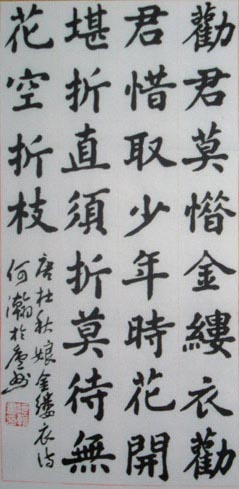 勸君莫惜金縷衣勸
君惜取少年時花開
堪折直須折莫待無
花空折枝
唐杜秋娘金缕衣诗
何瀚於